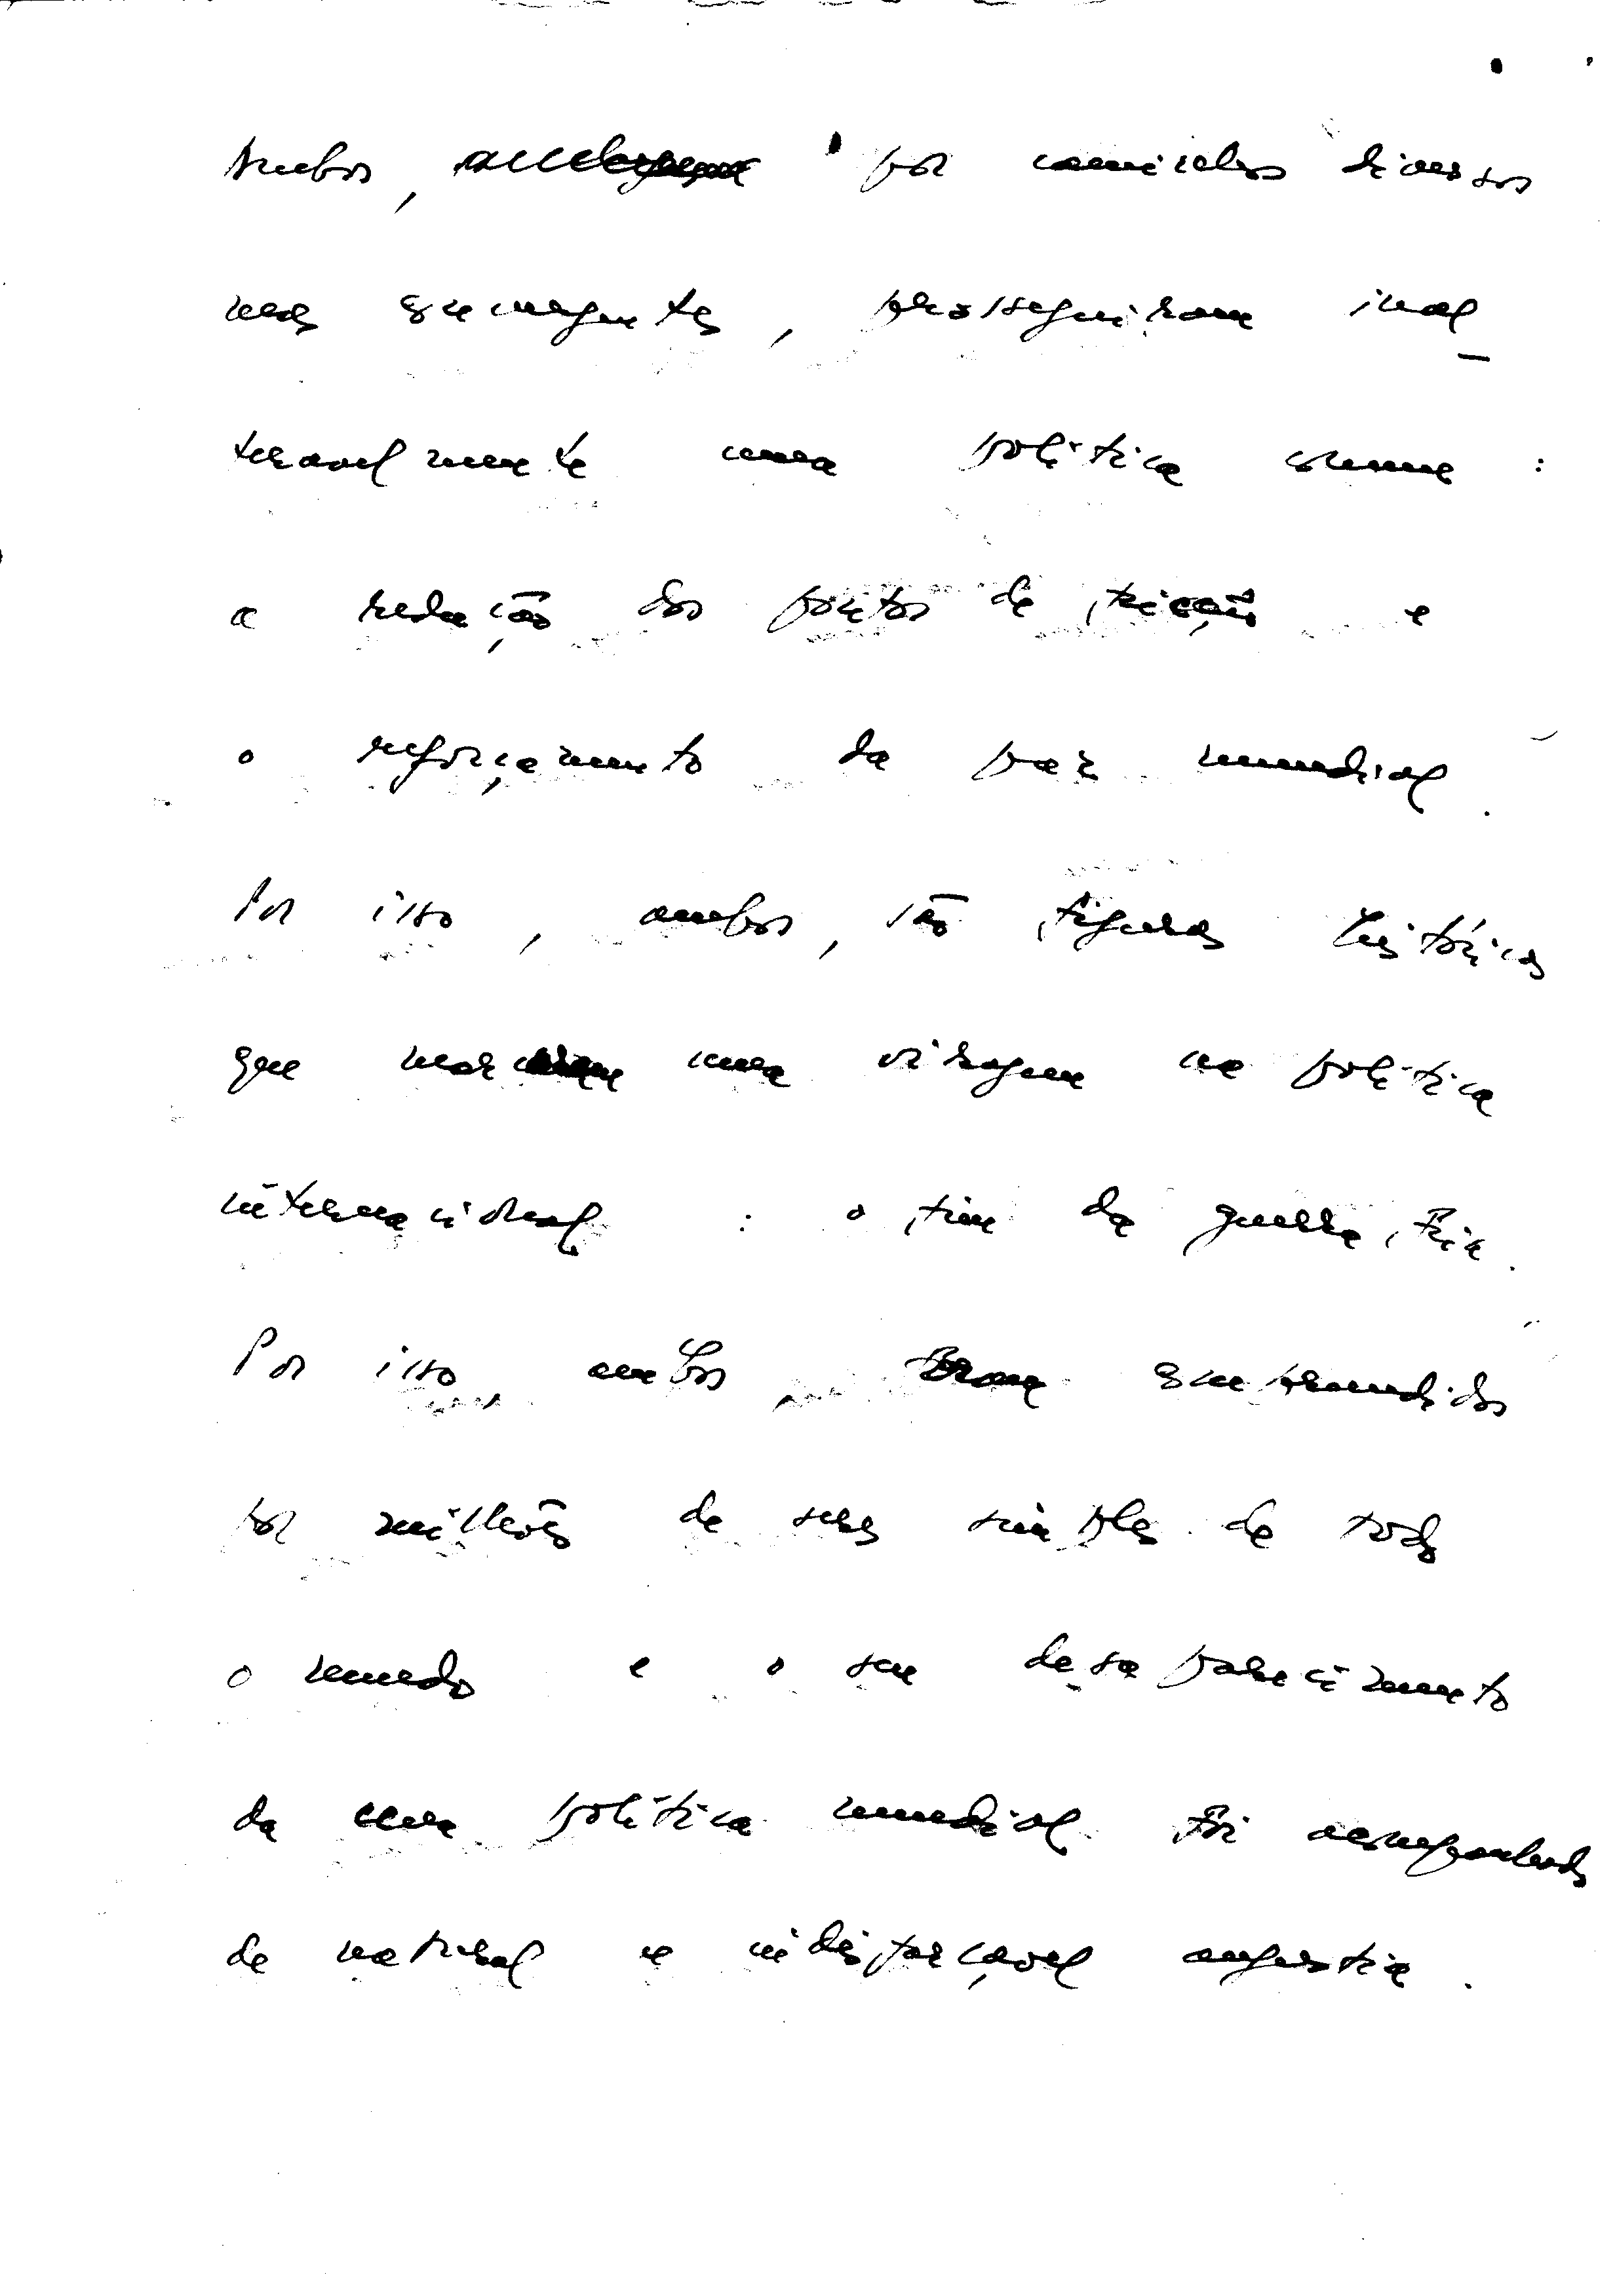 Ambos, por caminhos diversos
mas convergentes, prosseguiram inal-
teravelmente uma política comum :
a redução dos pontos de fricção e
o reforçamento da paz mundial.
Por isso, ambos, são figuras históricas
que marcam uma viragem na política
internacional : o fim da guerra fria.
Por isso ambos foram compreendidos
por milhões de seres simples de todo
o mundo e o seu desaparecimento
da cena política mundial foi acompanhado
de natural e indisfarçável angústia.